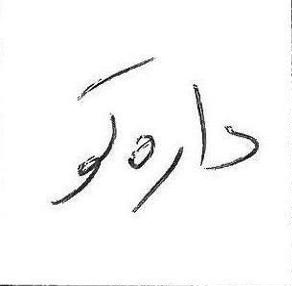 دارەکو